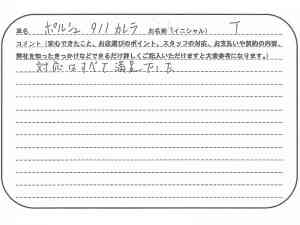 車名 ポルシェ 911 カレラ お名前(イニシャル) T
コメント(安心できたこと、お店選びのポイント、スタッフの対応、お支払いや契約の内容、
弊社を知ったきっかけなどできるだけ詳しくご記入いただけますと大変幸甚になります。)
対応はすべて満足でした